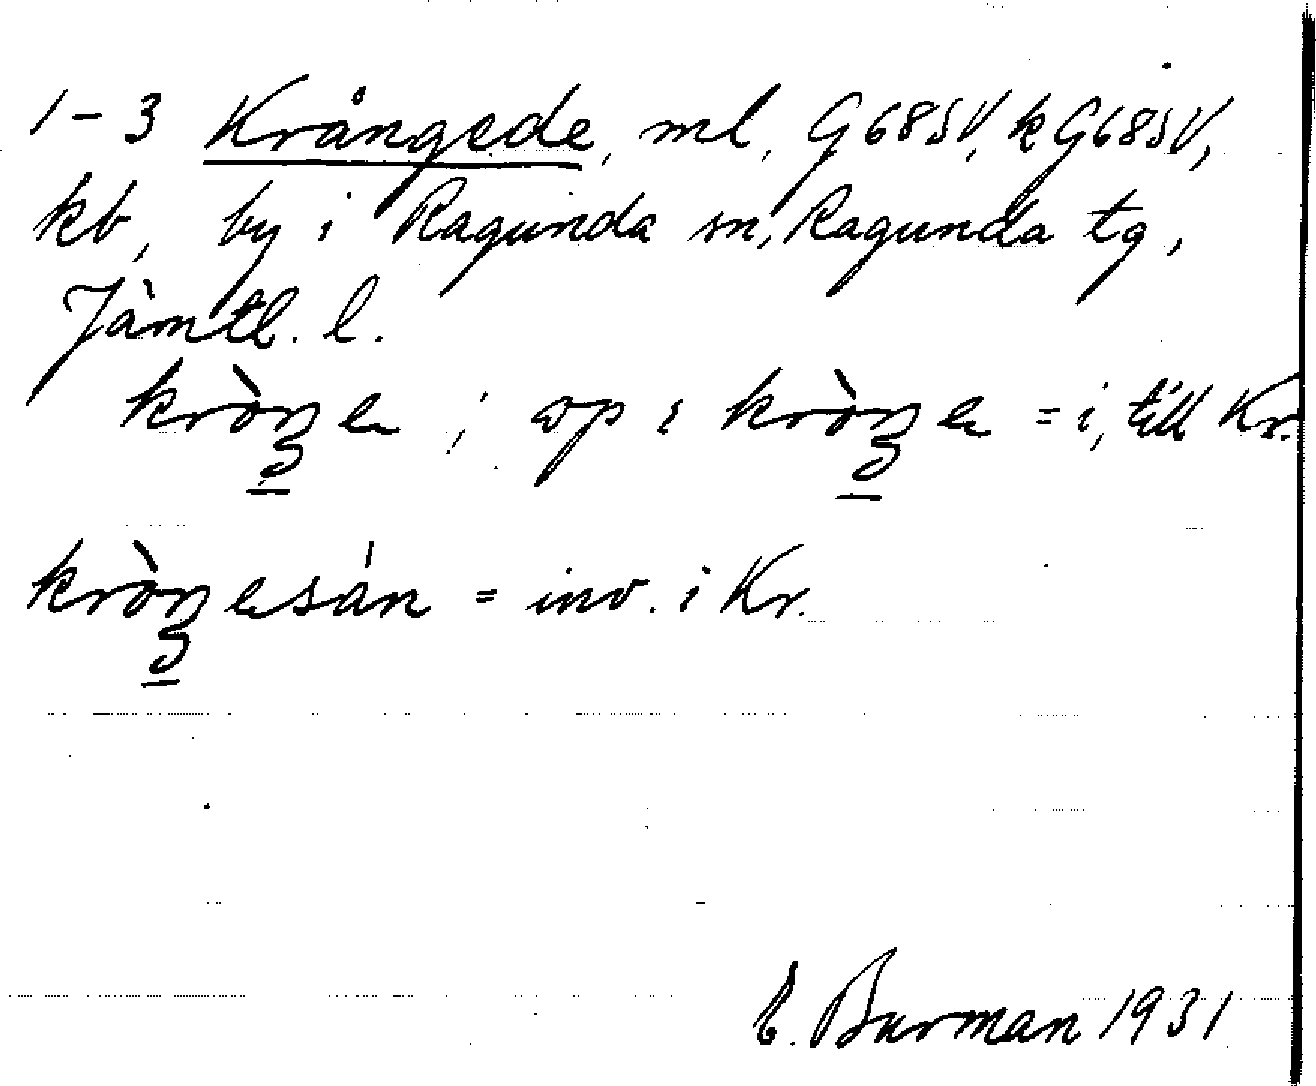 1-3 Krångede, ml, G68SV, k G68SV,
kb, by i Ragunda sn, Ragunda tg,
Jämtl. l.
kròŋe ; op i kròŋe = i, till Kr.
kròŋesán = inv. i Kr.
E. Burman 1931